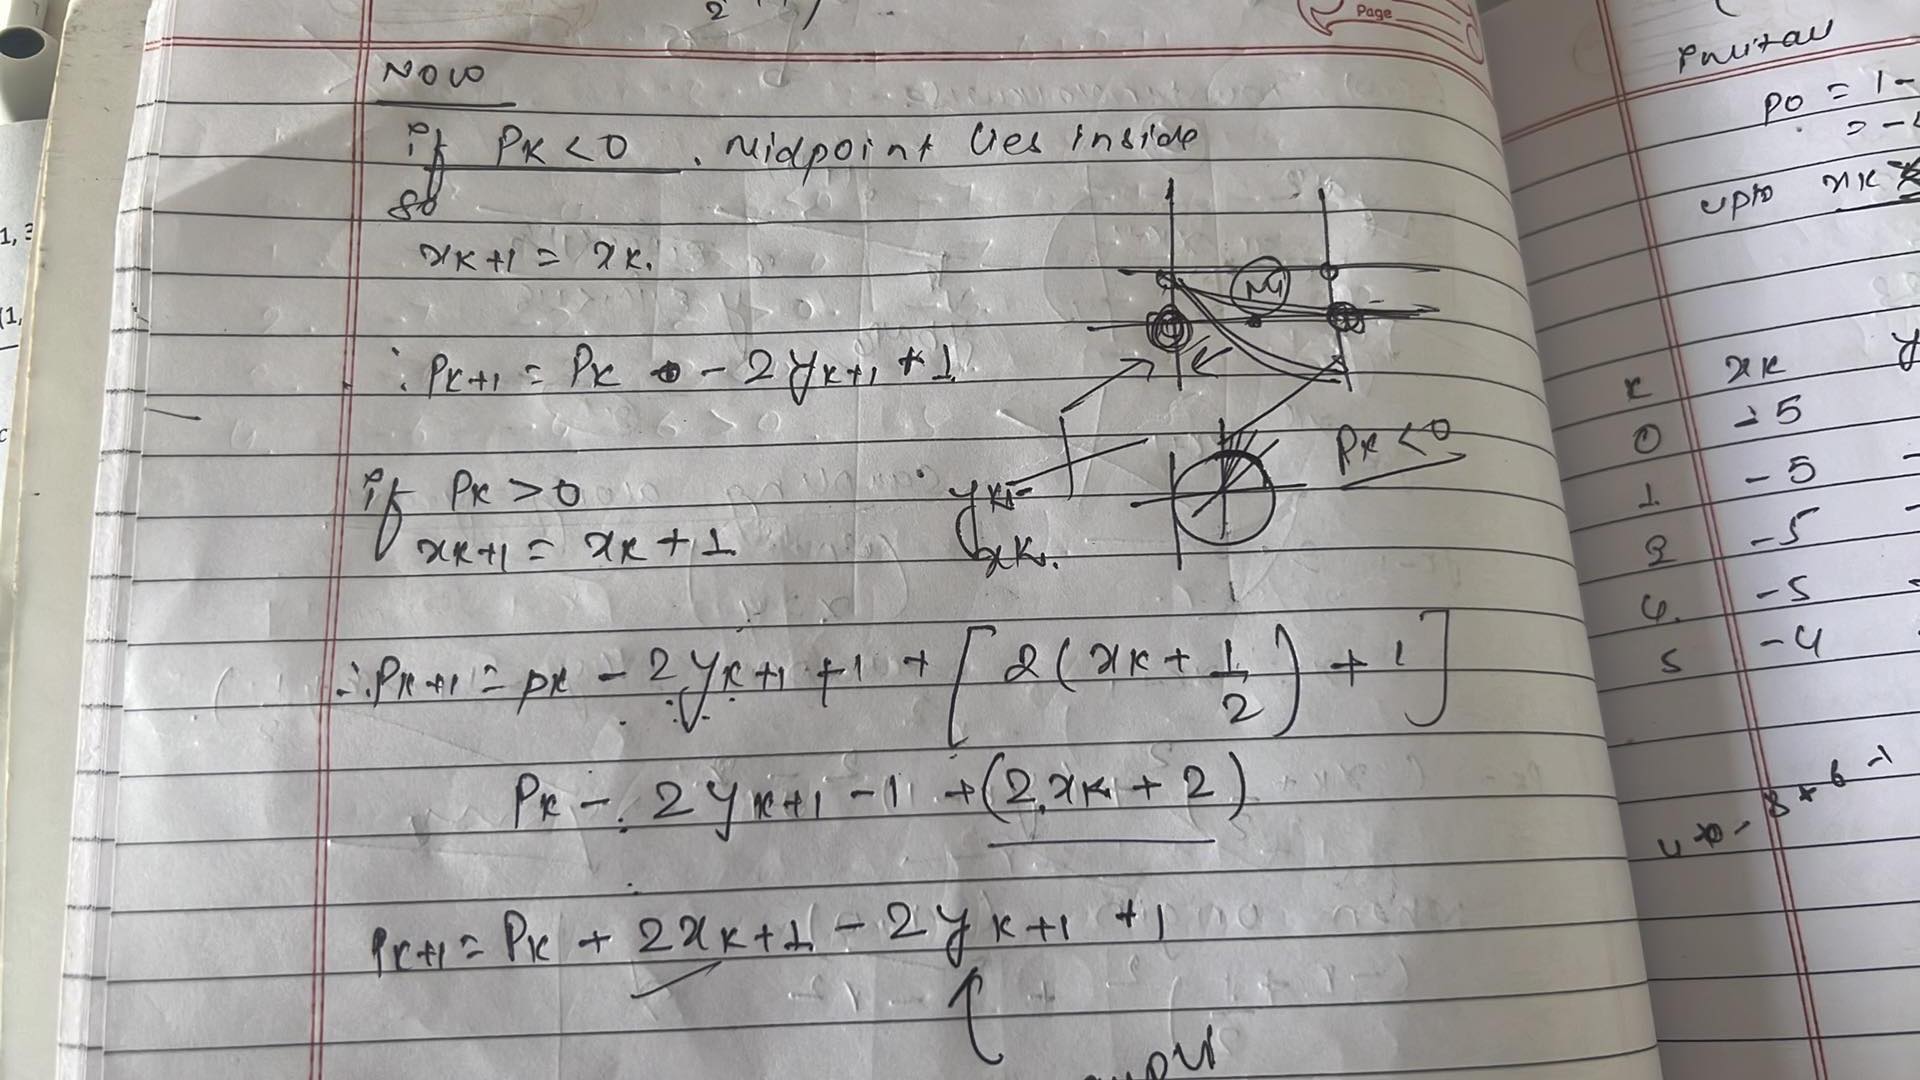 Page
Now
if Pk < 0 . Midpoint lies inside
so
xk+1 = xk.
M
∴ Pk+1 = Pk - 2yk+1 + 1
Pk < 0
if Pk > 0
xk+1 = xk + 1
xk.
∴ Pk+1 = pk - 2yk+1 + 1 + [ 2(xk + 1/2) + 1 ]
Pk - 2yk+1 - 1 + (2.xk + 2)
Pk+1 = Pk + 2xk+1 - 2yk+1 + 1
po = 1 -
upto xk
k xk y
0 -5
1 -5
2 -5
4. -5
5 -4